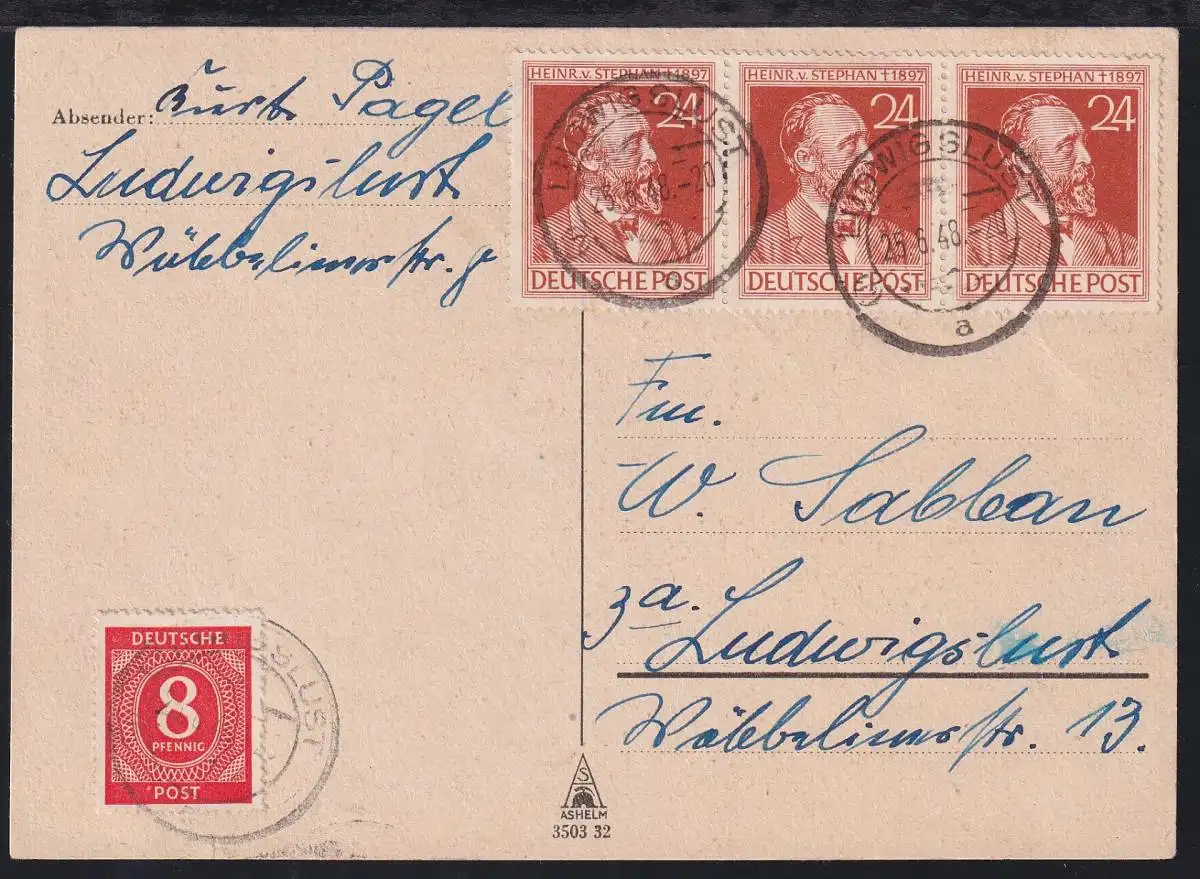 Absender: Kurt Pagel
Ludwigslust
Wöbbelinerstr. 9
HEINR. v. STEPHAN †1897
24
DEUTSCHE POST
HEINR. v. STEPHAN †1897
24
DEUTSCHE POST
HEINR. v. STEPHAN †1897
24
DEUTSCHE POST
LUDWIGSLUST
25.6.48.-20
o
LUDWIGSLUST
25.6.48.-20
a
Fm.
W. Sabban
3a. Ludwigslust
Wöbbelinerstr. 13.
DEUTSCHE
8
PFENNIG
POST
GSLUST
S
ASHELM
3503 32